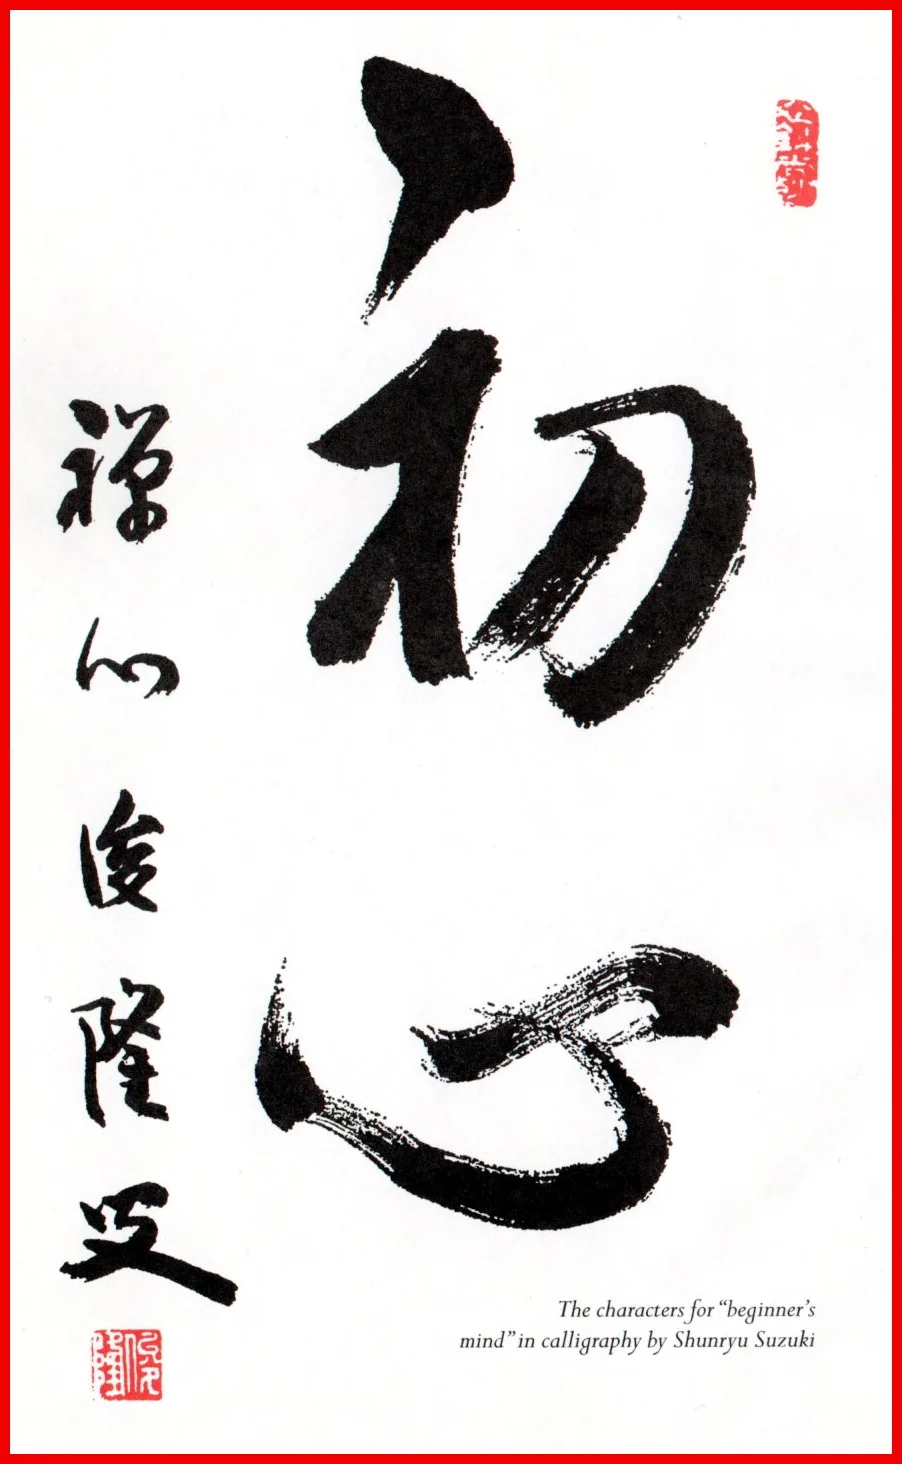 初心
禅心俊隆叟
The characters for “beginner’s
mind” in calligraphy by Shunryu Suzuki
俊隆